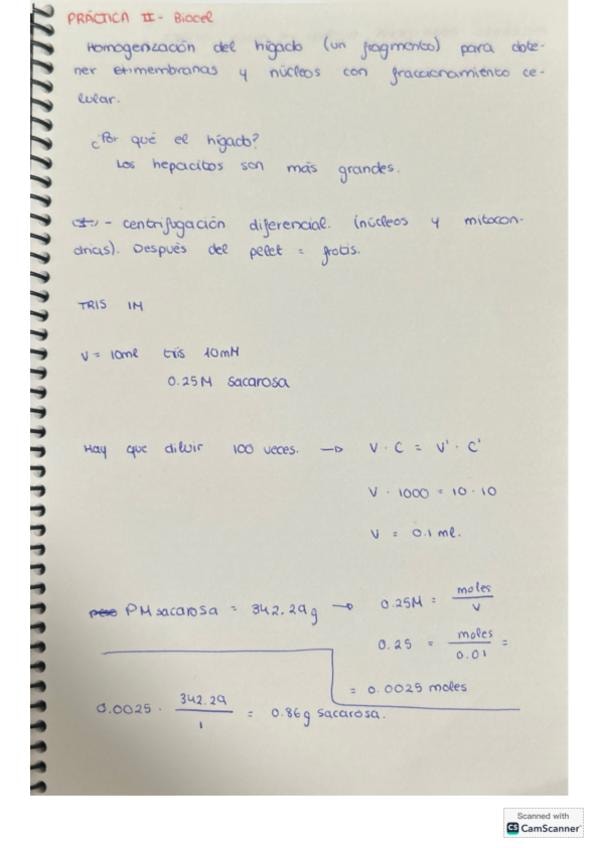 PRÁCTICA II - Biocel
Homogenización del hígado (un fragmento) para obte-
ner membranas y núcleos con fraccionamiento ce-
lular.
¿Por qué el hígado?
Los hepacitos son más grandes.
- centrifugación diferencial. (núcleos y mitocon-
drias). Después del pelet = frotis.
TRIS 1M
V = 10ml tris 10mM
0.25M sacarosa
Hay que diluir 100 veces. → V · C = V' · C'
V · 1000 = 10 · 10
V = 0.1 ml.
PM sacarosa = 342.29g → 0.25M = moles / V
0.25 = moles / 0.01 =
= 0.0025 moles
0.0025 · 342.29 / 1 = 0.86g sacarosa.
Scanned with
CS CamScanner